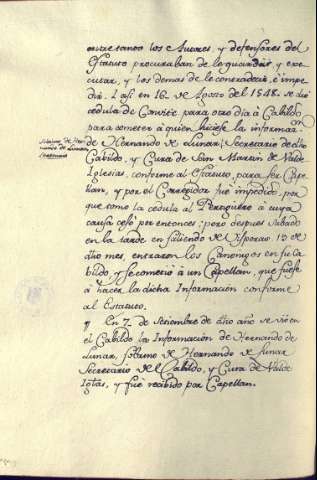 entretando los Autores, y defensores del
Estatuto procuraban de le guardar y exe-
cutar, y los demas de le contradecir, e impe-
dir. I asi en 16 de Agosto del 1548. se dió
cédula de Convite para otro dia à Cabildo
para cometer à quien hiciese la informa.on
de Hernando de Lunar, Secretario del
Cabildo, y Cura de San Martin de Valde
Iglesias, conforme al Estatuto, para ser Cape-
llan, y por el Corregidor fué impedido, por
que como la cédula al Pertiguero à cuya
causa cesó por entonces: pero despues Sabado
en la tarde en saliendo de Visperas 18 de
dho mes, entraron los Canonigos en su Ca-
bildo, y se cometió à un Capellan, que fuese
à hacer la dicha Informacion conforme
al Estatuto.
¶ En 7 de Setiembre de dho año se vió en
el Cabildo la Informacion de Hernando de
Lunar, sobrino de Hernando de Lunar
Secretario del Cabildo, y Cura de Valde
Igl.as, y fué recibido por Capellan.